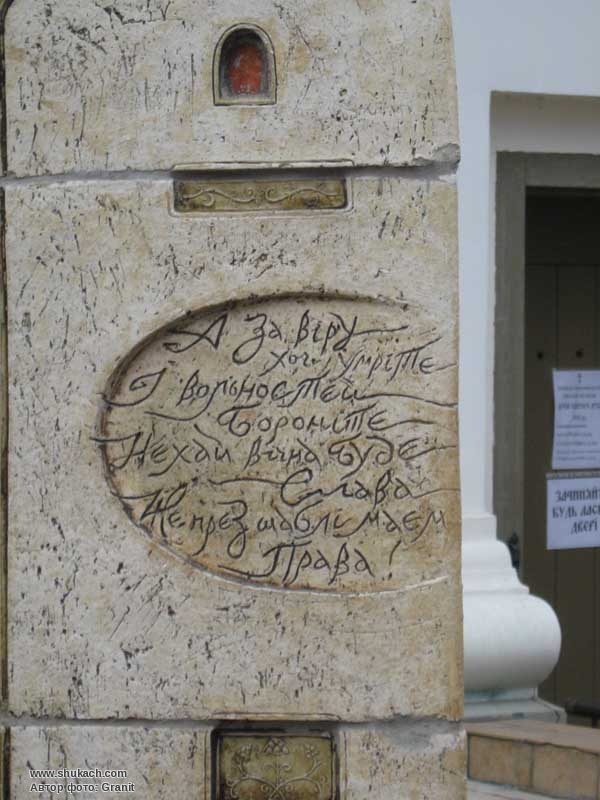 А за віру
хоч умріте
І вольностей
Бороните
Нехай вічна буде
Слава
Же през шаблі маем
Права!
ЗАЧИНЯЙТЕ
БУДЬ ЛАСКА
ДВЕРІ
www.shukach.com
Автор фото: Granit